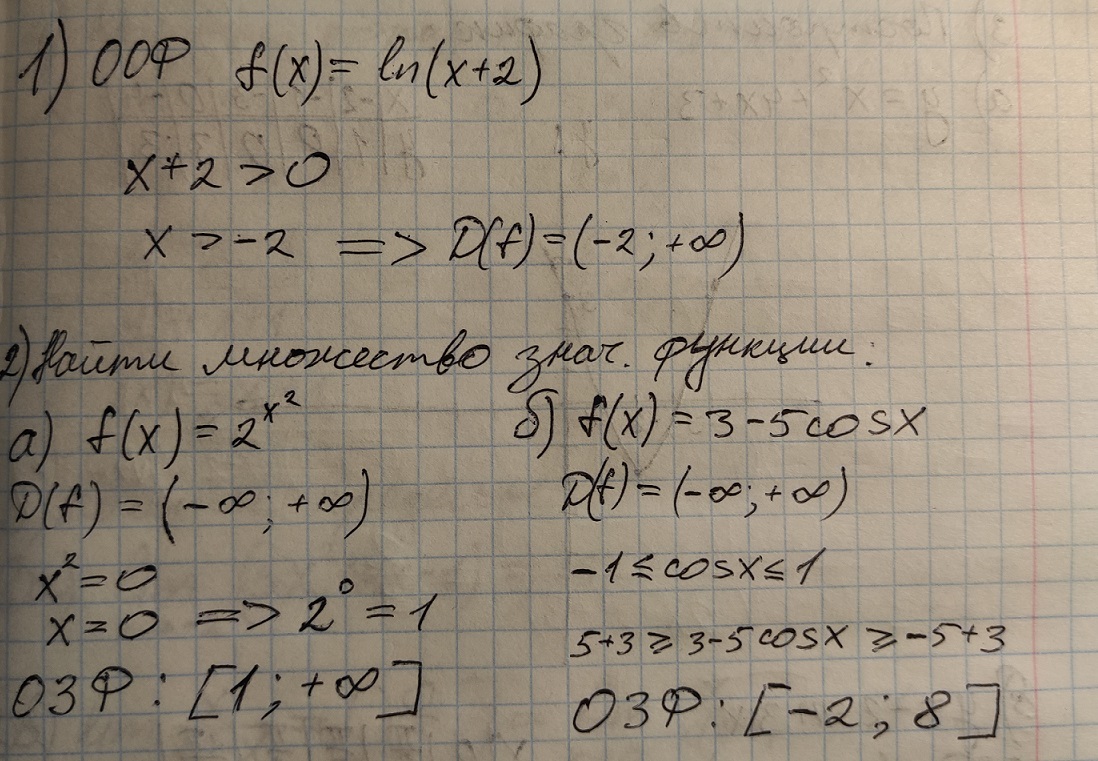 1) ООФ f(x) = ln(x+2)
x+2 > 0
x > -2 => D(f) = (-2; +∞)
2) Найти множество знач. функции:
а) f(x) = 2^{x^2}
D(f) = (-∞; +∞)
x^2 = 0
x = 0 => 2^0 = 1
ОЗФ: [1; +∞]
б) f(x) = 3 - 5cosx
D(f) = (-∞; +∞)
-1 ≤ cosx ≤ 1
5+3 ≥ 3-5cosx ≥ -5+3
ОЗФ: [-2; 8]